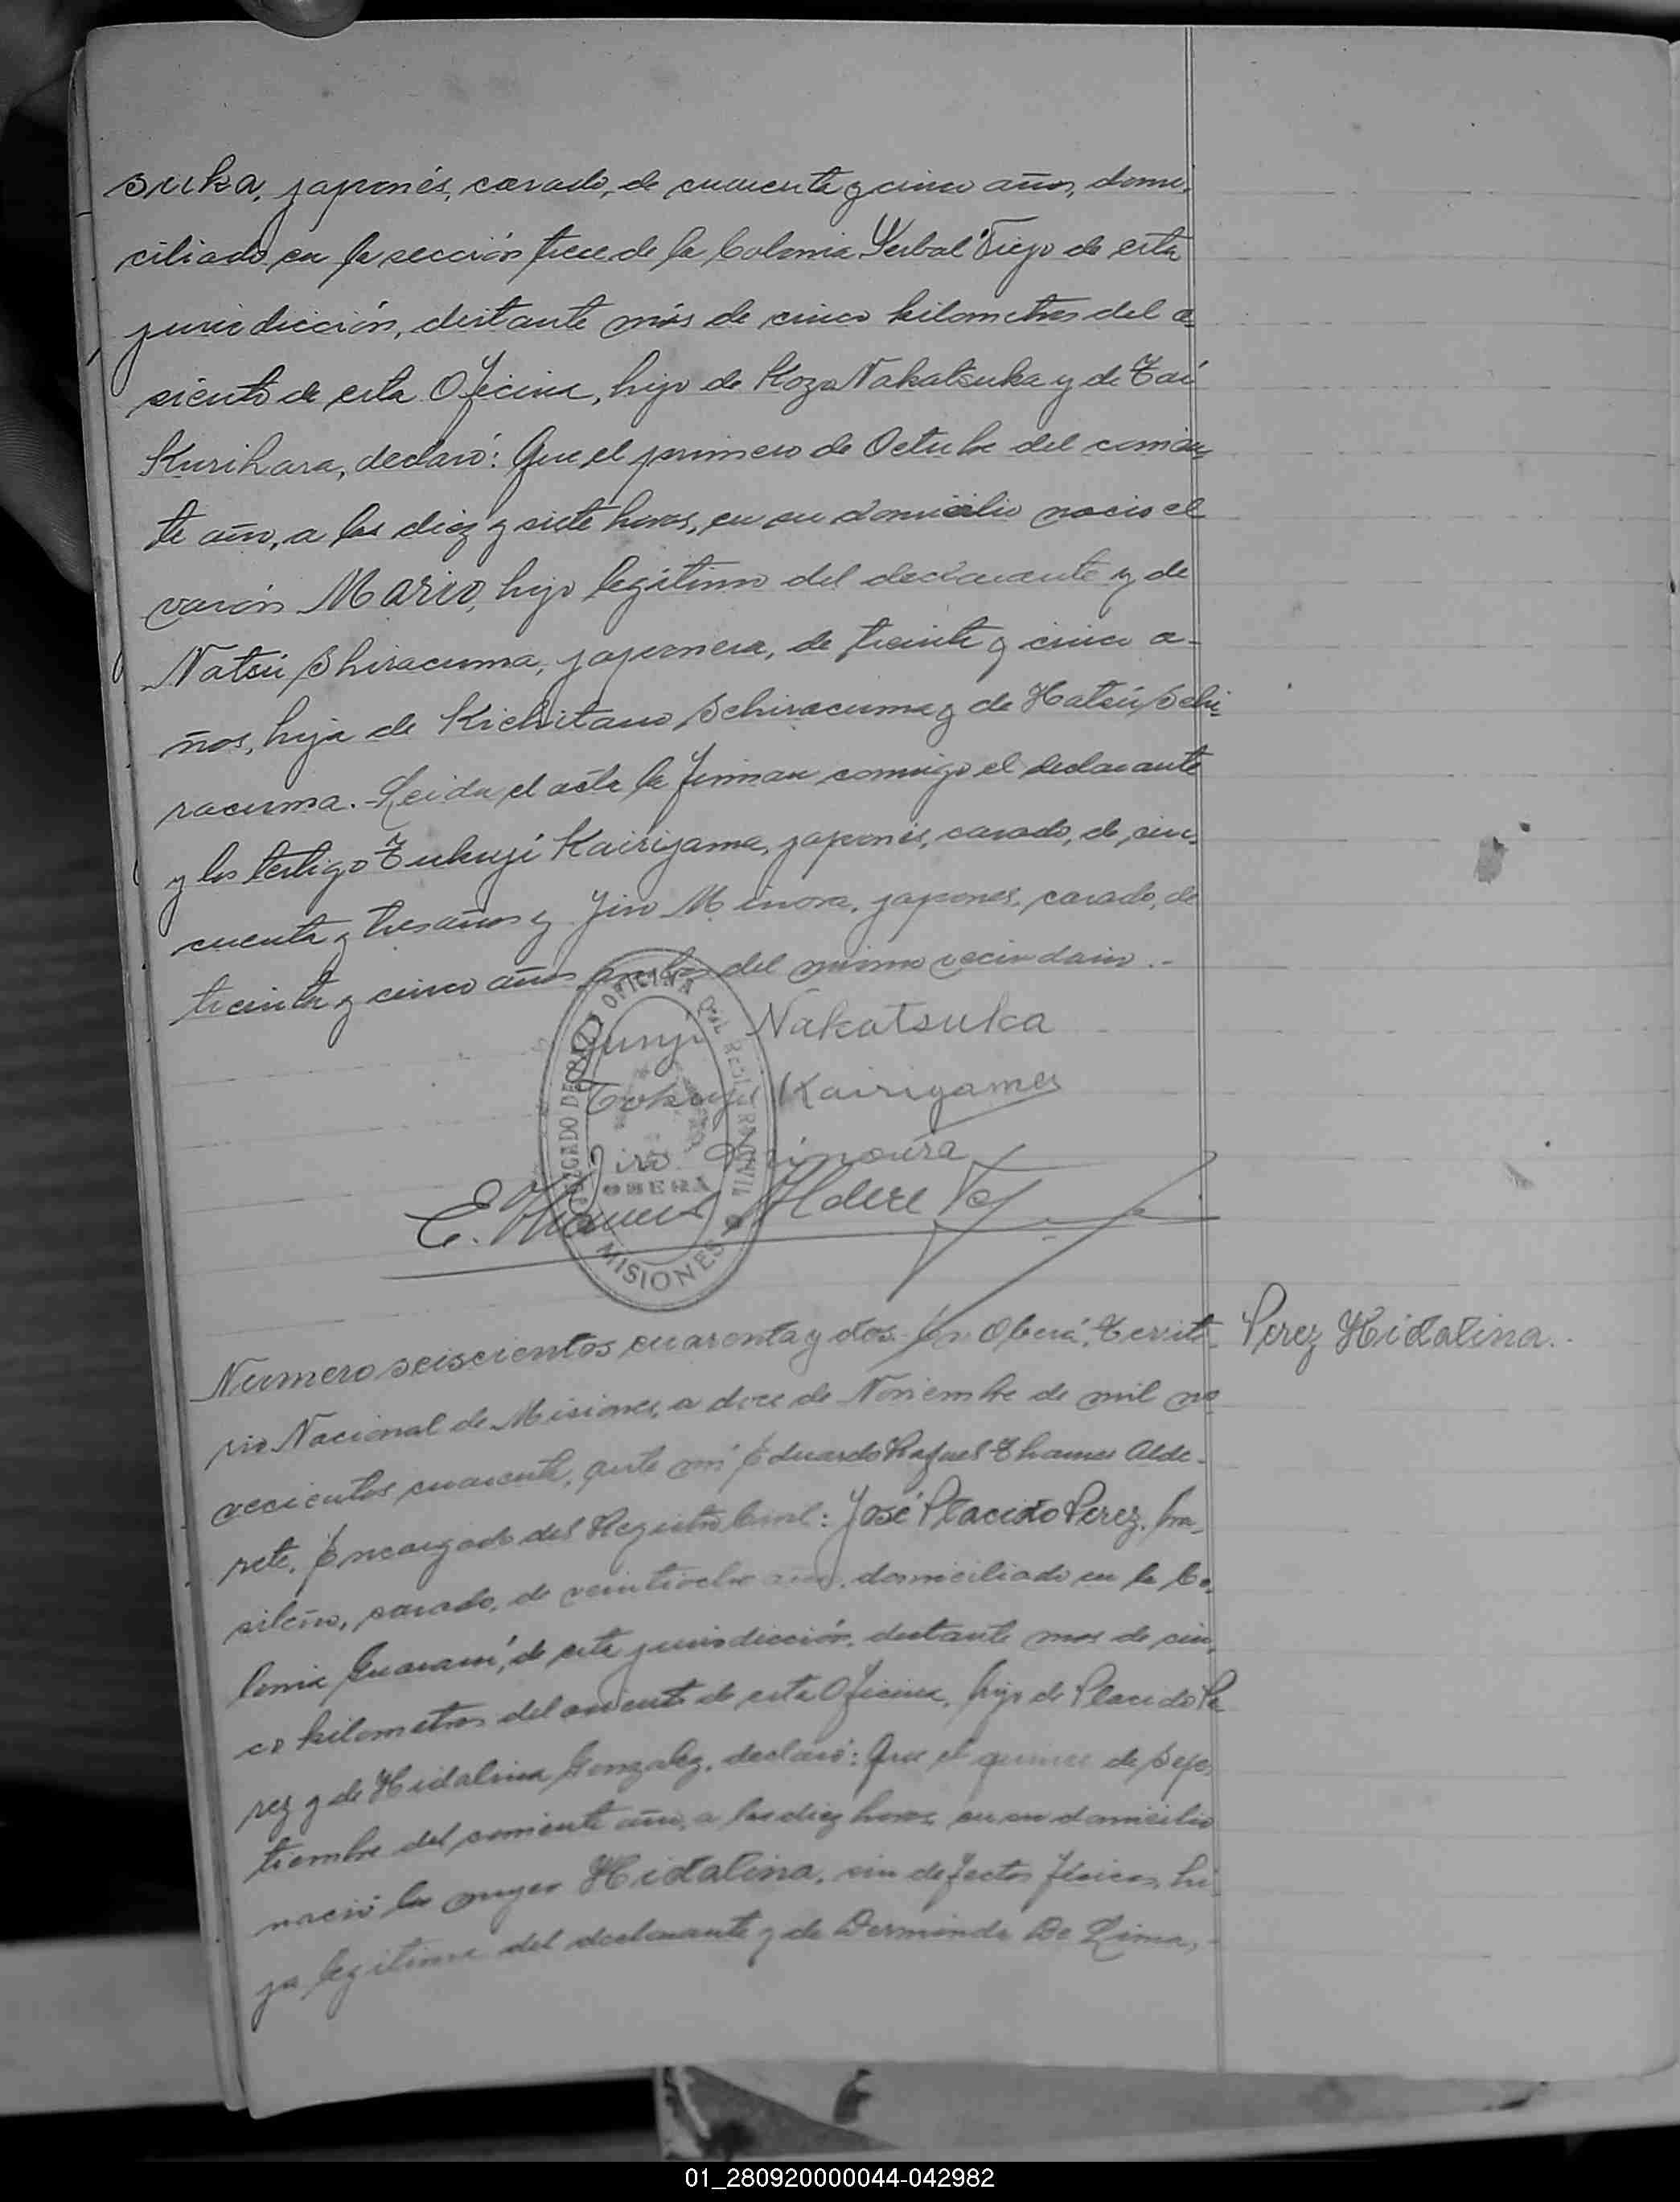 suka, japonés, casado, de cuarenta y cinco años, domi-
ciliado en la sección trece de la Colonia Yerbal Viejo de esta
jurisdicción, distante más de cinco kilometros del a-
siento de esta Oficina, hijo de Kozo Nakatsuka y de Tai
Kurihara, declaró: Que el primero de Octubre del corrien-
te año, a las diez y siete horas, en su domicilio nacio el
varón Mario, hijo legítimo del declarante y de
Natsú Shiracuma, japonesa, de treinta y cinco a-
ños, hija de Kichitaro Schiracuma y de Hatsú Schi-
racuma. Leida el acta la firman conmigo el declarante
y los testigo Tukuji Kairiyama, japonés, casado, de cin-
cuenta y tres años y Jiro Minora, japones, casado, de
treinta y cinco años ambos del mismo vecindario.-
Junji Nakatsuka
Tokuji Kairiyama
Jiro Minoura
E. Thames Alderete
JUZGADO DE PAZ Y OFICINA DEL REGISTRO CIVIL
OBERA
MISIONES
Numero seiscientos cuarenta y dos. En Oberá, Territo-
Perez Hidalina.
rio Nacional de Misiones, a doce de Noviembre de mil no-
vecientos cuarenta, ante mi Eduardo Rafael Thames Alde-
rete, Encargado del Registro Civil: José Placido Perez, bra-
sileño, casado, de veintiocho años, domiciliado en la Co-
lonia Guaraní, de esta jurisdicción, distante mas de cin-
co kilometros del asiento de esta Oficina, hijo de Placido Pe
rez y de Hidalina Gonzalez, declaró: Que el quince de Sep-
tiembre del corriente año, a las diez horas, en su domicilio
nació la mujer Hidalina, sin defectos fisicos, hi-
ja legitima del declarante y de Derminda De Lima,
01_280920000044-042982